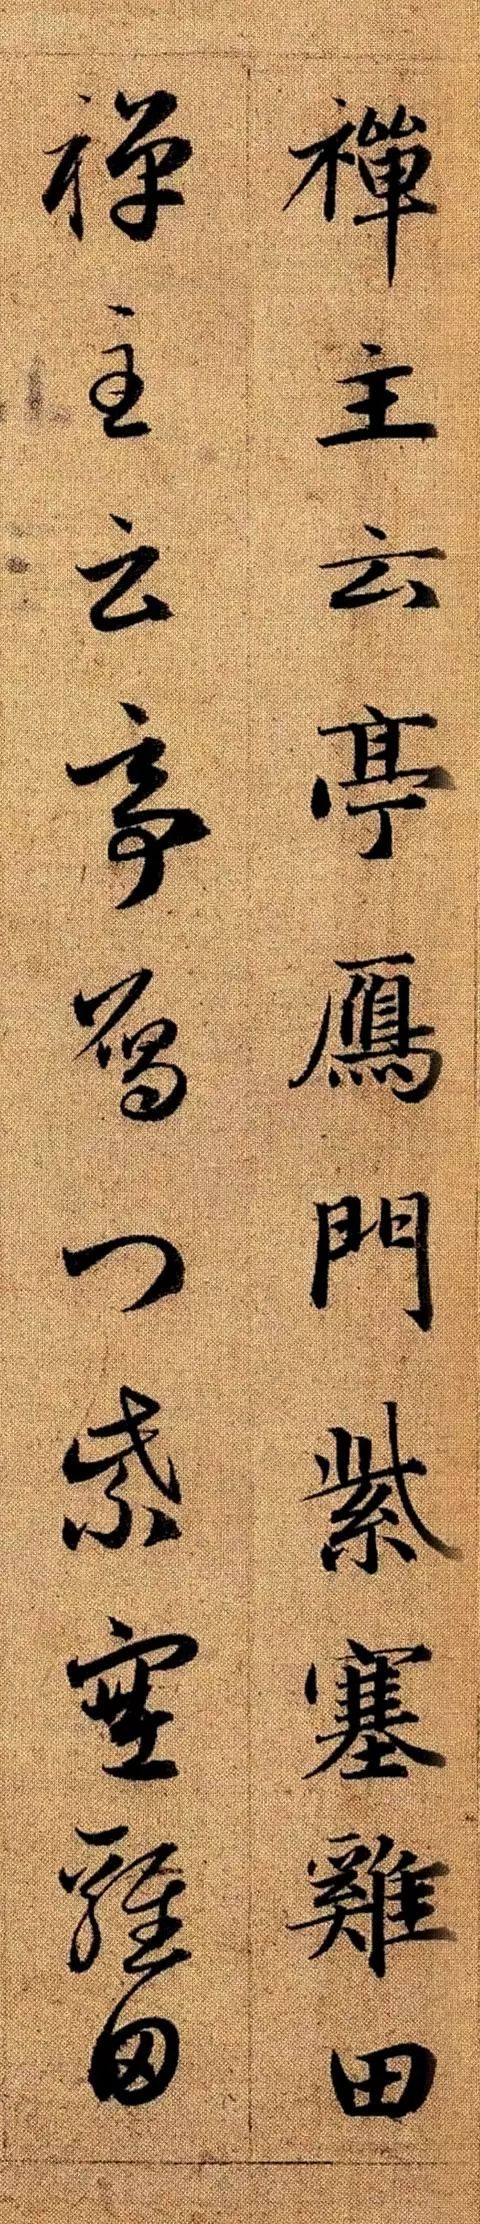 禪主云亭鴈門紫塞雞田
禪主云亭鴈門紫塞雞田